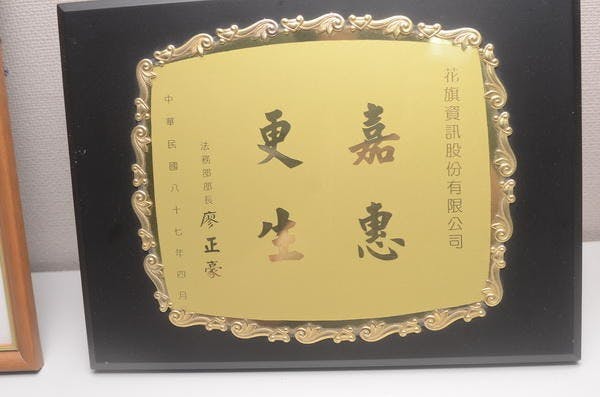 花旗資訊股份有限公司
嘉惠
更生
法務部部長 廖正豪
中華民國八十七年四月